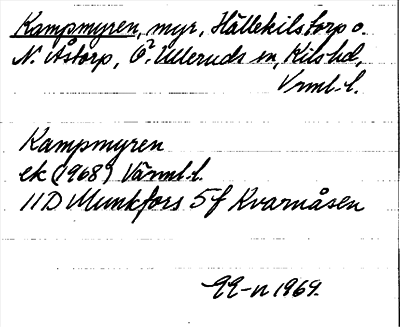 Kampmyren, myr, Hällekilstorp o.
N. Åstorp, Ö. Ulleruds sn, Kils hd,
Vrml. l.
Kampmyren
ek (1968) Värml. l.
11D Munkfors 5f Kvarnåsen
1969.